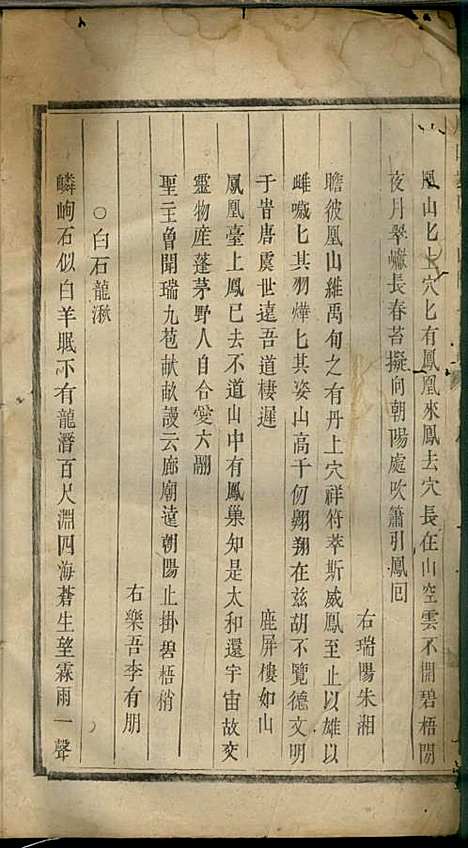 鳳山匕上穴匕有鳳凰來鳳去穴長在山空雲不開碧梧閒
夜月翠巘長春苔擬向朝陽處吹簫引鳳回
右瑞陽朱湘
瞻彼凰山維禹甸之有丹上穴祥符萃斯威鳳至止以雄以
雌噦匕其羽燁匕其姿山高千仞翱翔在茲胡不覽德文明
于昔唐虞世遠吾道棲遲
鹿屏樓如山
鳳凰臺上鳳已去不道山中有鳳巢知是太和還宇宙故交
靈物産蓬茅野人自合愛六翮
聖王曾聞瑞九苞畎畝謾云廊廟遠朝陽止掛碧梧梢
右樂吾李有朋
○白石龍湫
嶙峋石似白羊坻下有龍潛百尺淵四海蒼生望霖雨一聲